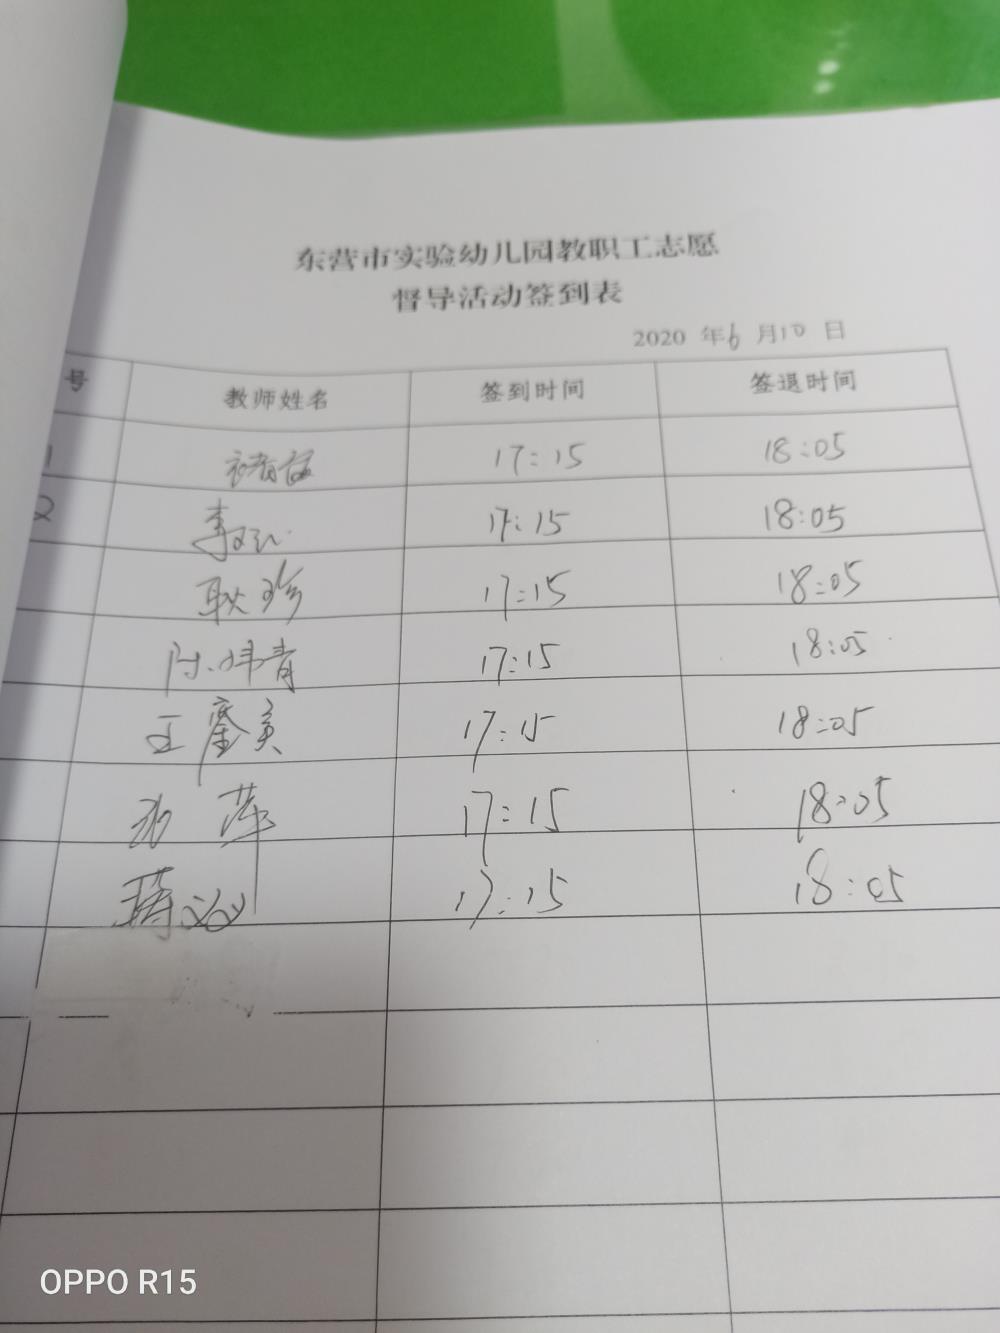 东营市实验幼儿园教职工志愿
督导活动签到表
2020 年6月10日
号 教师姓名 签到时间 签退时间
1 17:15 18:05
2 17:15 18:05
耿珍 17:15 18:05
17:15 18:05
王 17:15 18:05
萍 17:15 18:05
17:15 18:05
OPPO R15